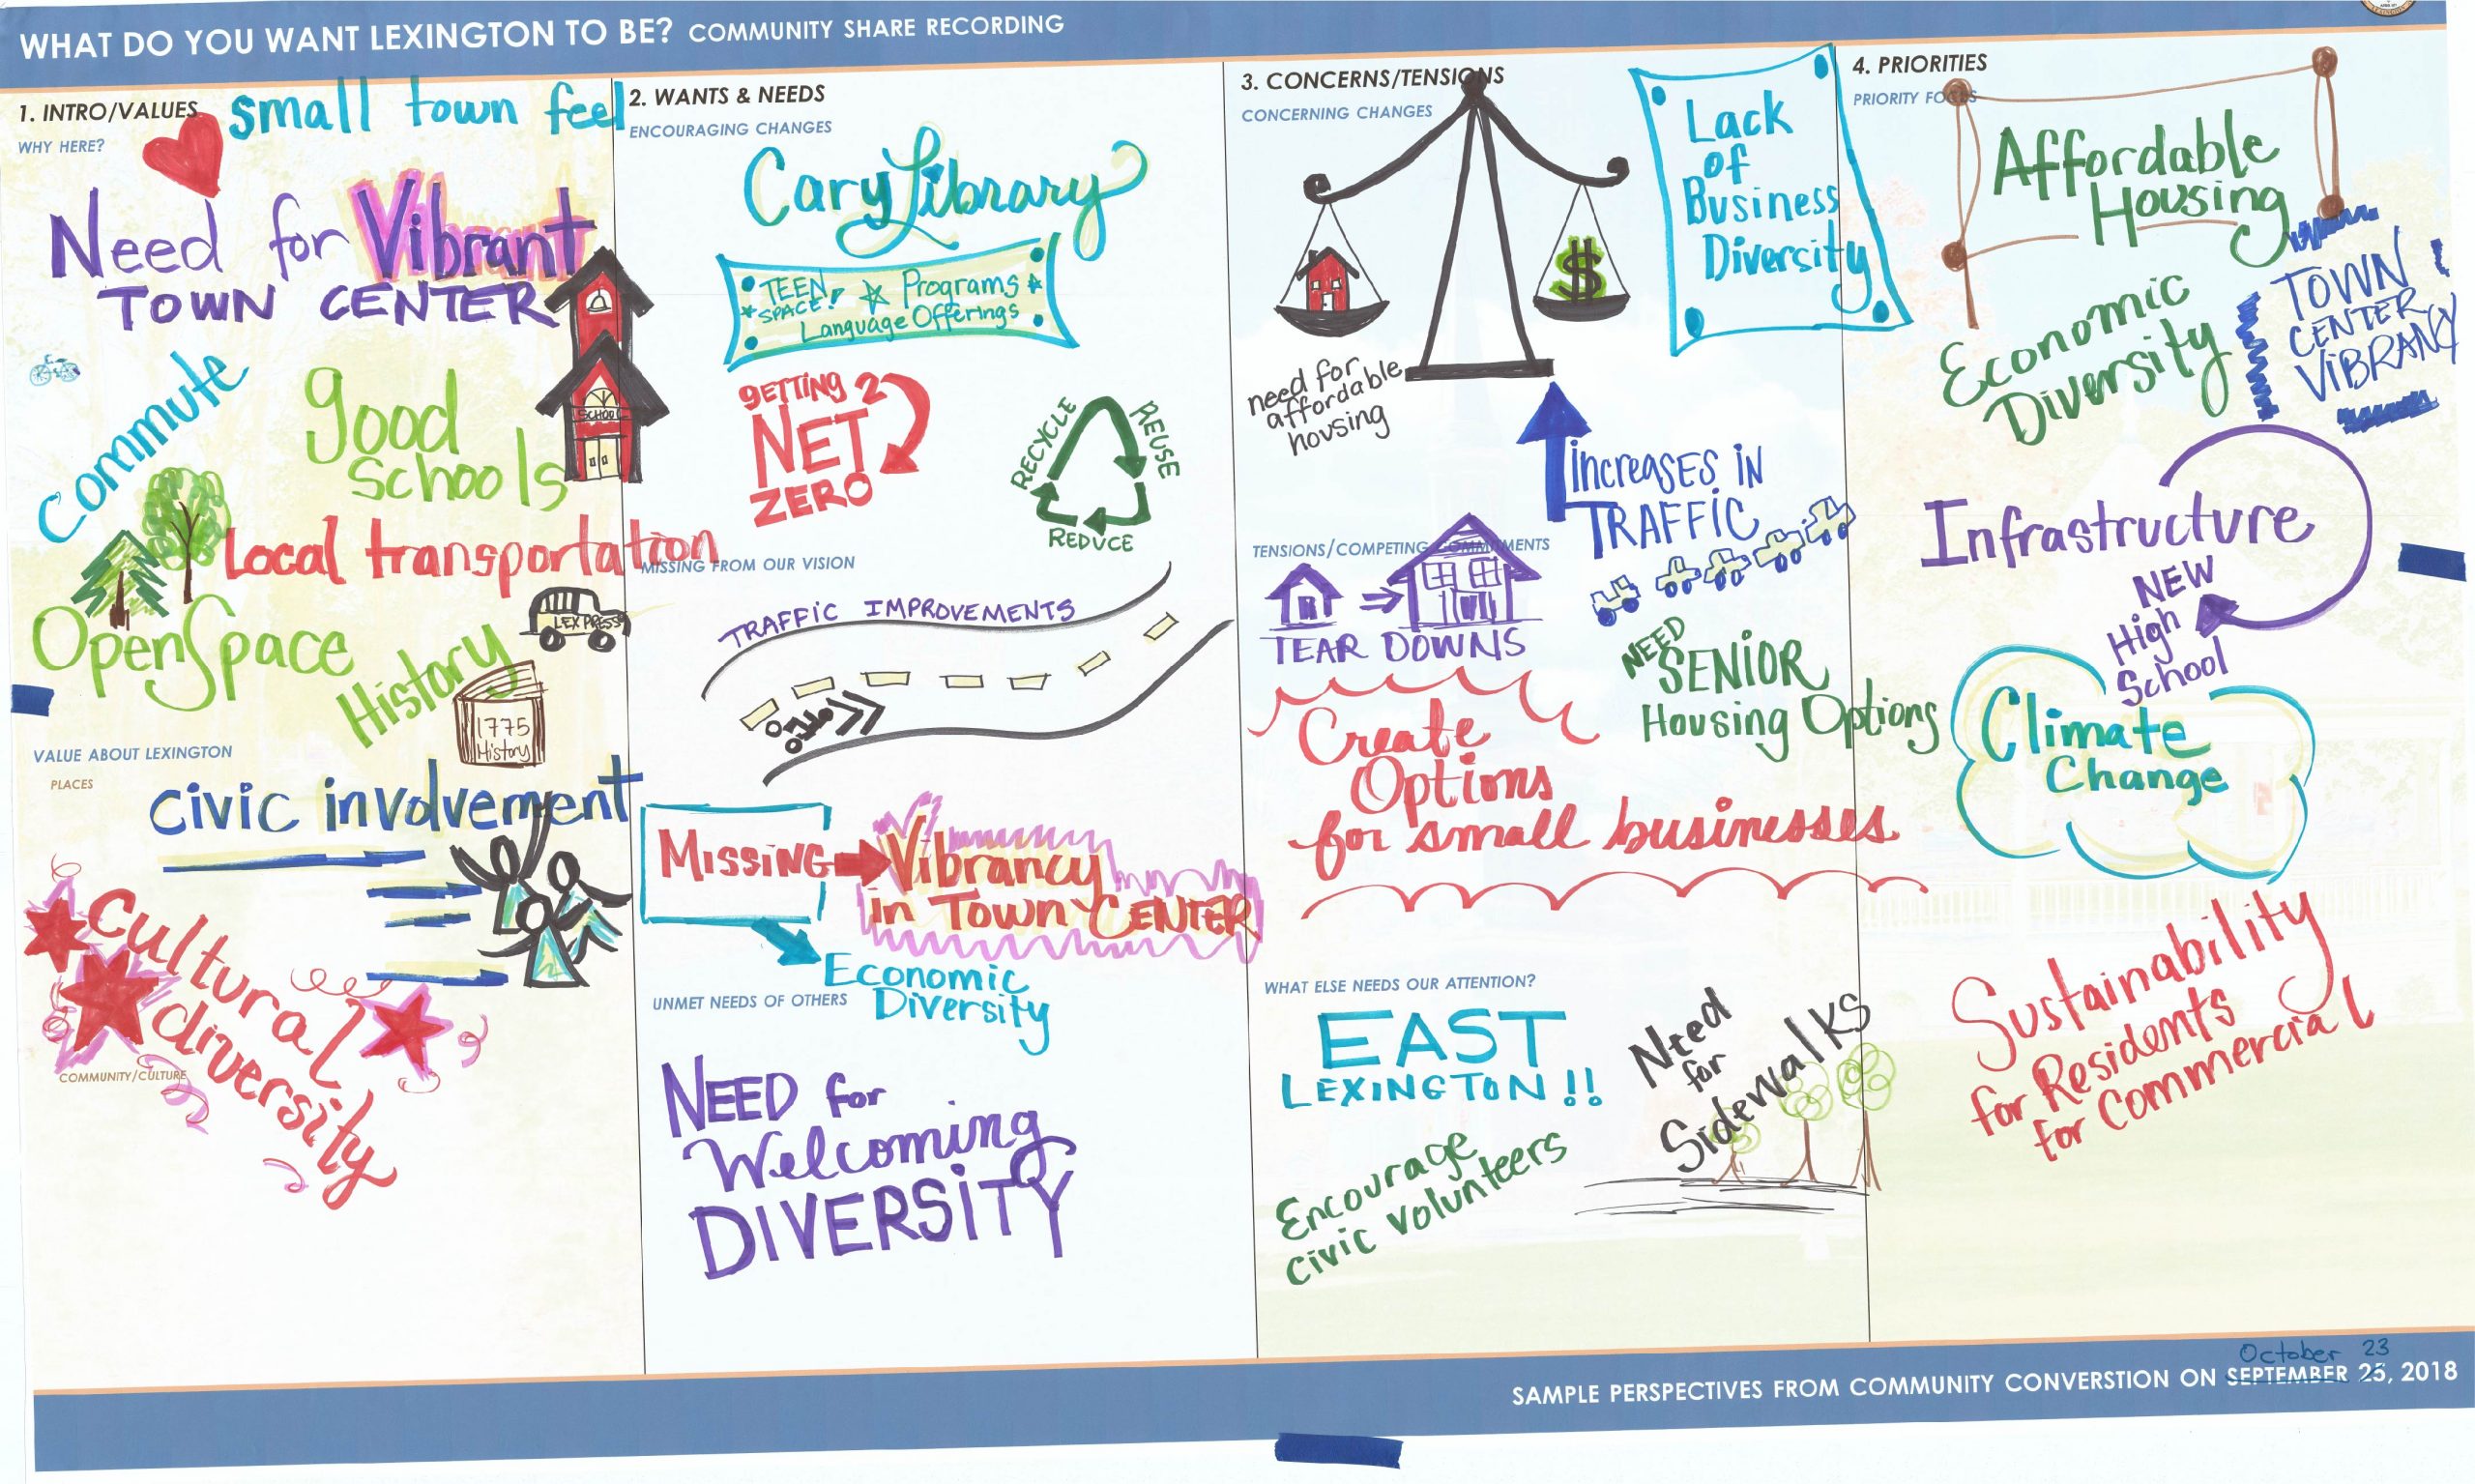 WHAT DO YOU WANT LEXINGTON TO BE? COMMUNITY SHARE RECORDING
1. INTRO/VALUES
WHY HERE?
small town feel
Need for Vibrant
TOWN CENTER
Commute
good
schools
SCHOOL
Local transportation
LEXPRESS
OpenSpace
History
1775
History
VALUE ABOUT LEXINGTON
PLACES
civic involvement
Cultural
diversity
COMMUNITY/CULTURE
2. WANTS & NEEDS
ENCOURAGING CHANGES
Cary Library
TEEN
SPACE!
Programs
Language Offerings
GETTING 2
NET
ZERO
RECYCLE
REUSE
REDUCE
MISSING FROM OUR VISION
TRAFFIC IMPROVEMENTS
MISSING
Vibrancy
in TOWN CENTER
Economic
Diversity
UNMET NEEDS OF OTHERS
NEED for
Welcoming
DIVERSITY
3. CONCERNS/TENSIONS
CONCERNING CHANGES
$
need for
affordable
housing
Lack
of
Business
Diversity
increases in
TRAFFIC
TENSIONS/COMPETING COMMITMENTS
TEAR DOWNS
NEED
SENIOR
Housing Options
Create
Options
for small businesses
WHAT ELSE NEEDS OUR ATTENTION?
EAST
LEXINGTON!!
Need
for
Sidewalks
Encourage
civic volunteers
4. PRIORITIES
PRIORITY FOCUS
Affordable
Housing
Economic
Diversity
TOWN
CENTER
VIBRANCY
!
Infrastructure
NEW
High
School
Climate
Change
Sustainability
for Residents
for Commercial
October 23
SAMPLE PERSPECTIVES FROM COMMUNITY CONVERSTION ON SEPTEMBER 25, 2018